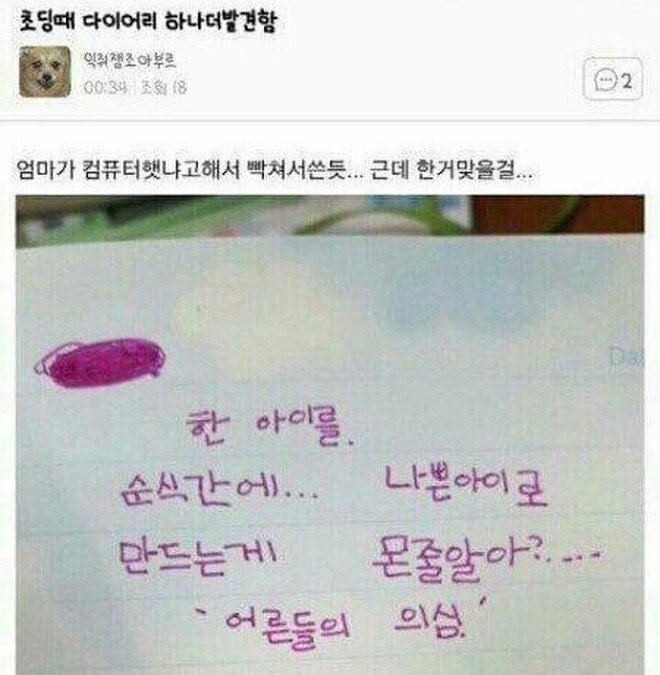 초딩때 다이어리 하나더발견함
익줘쟴조아부르
00:34 조회 18
2
엄마가 컴퓨터햇냐고해서 빡쳐서쓴듯... 근데 한거맞을걸...
Da
한 아이를.
순식간에... 나쁜아이로
만드는게 몬줄알아?....
'어른들의 의심.'